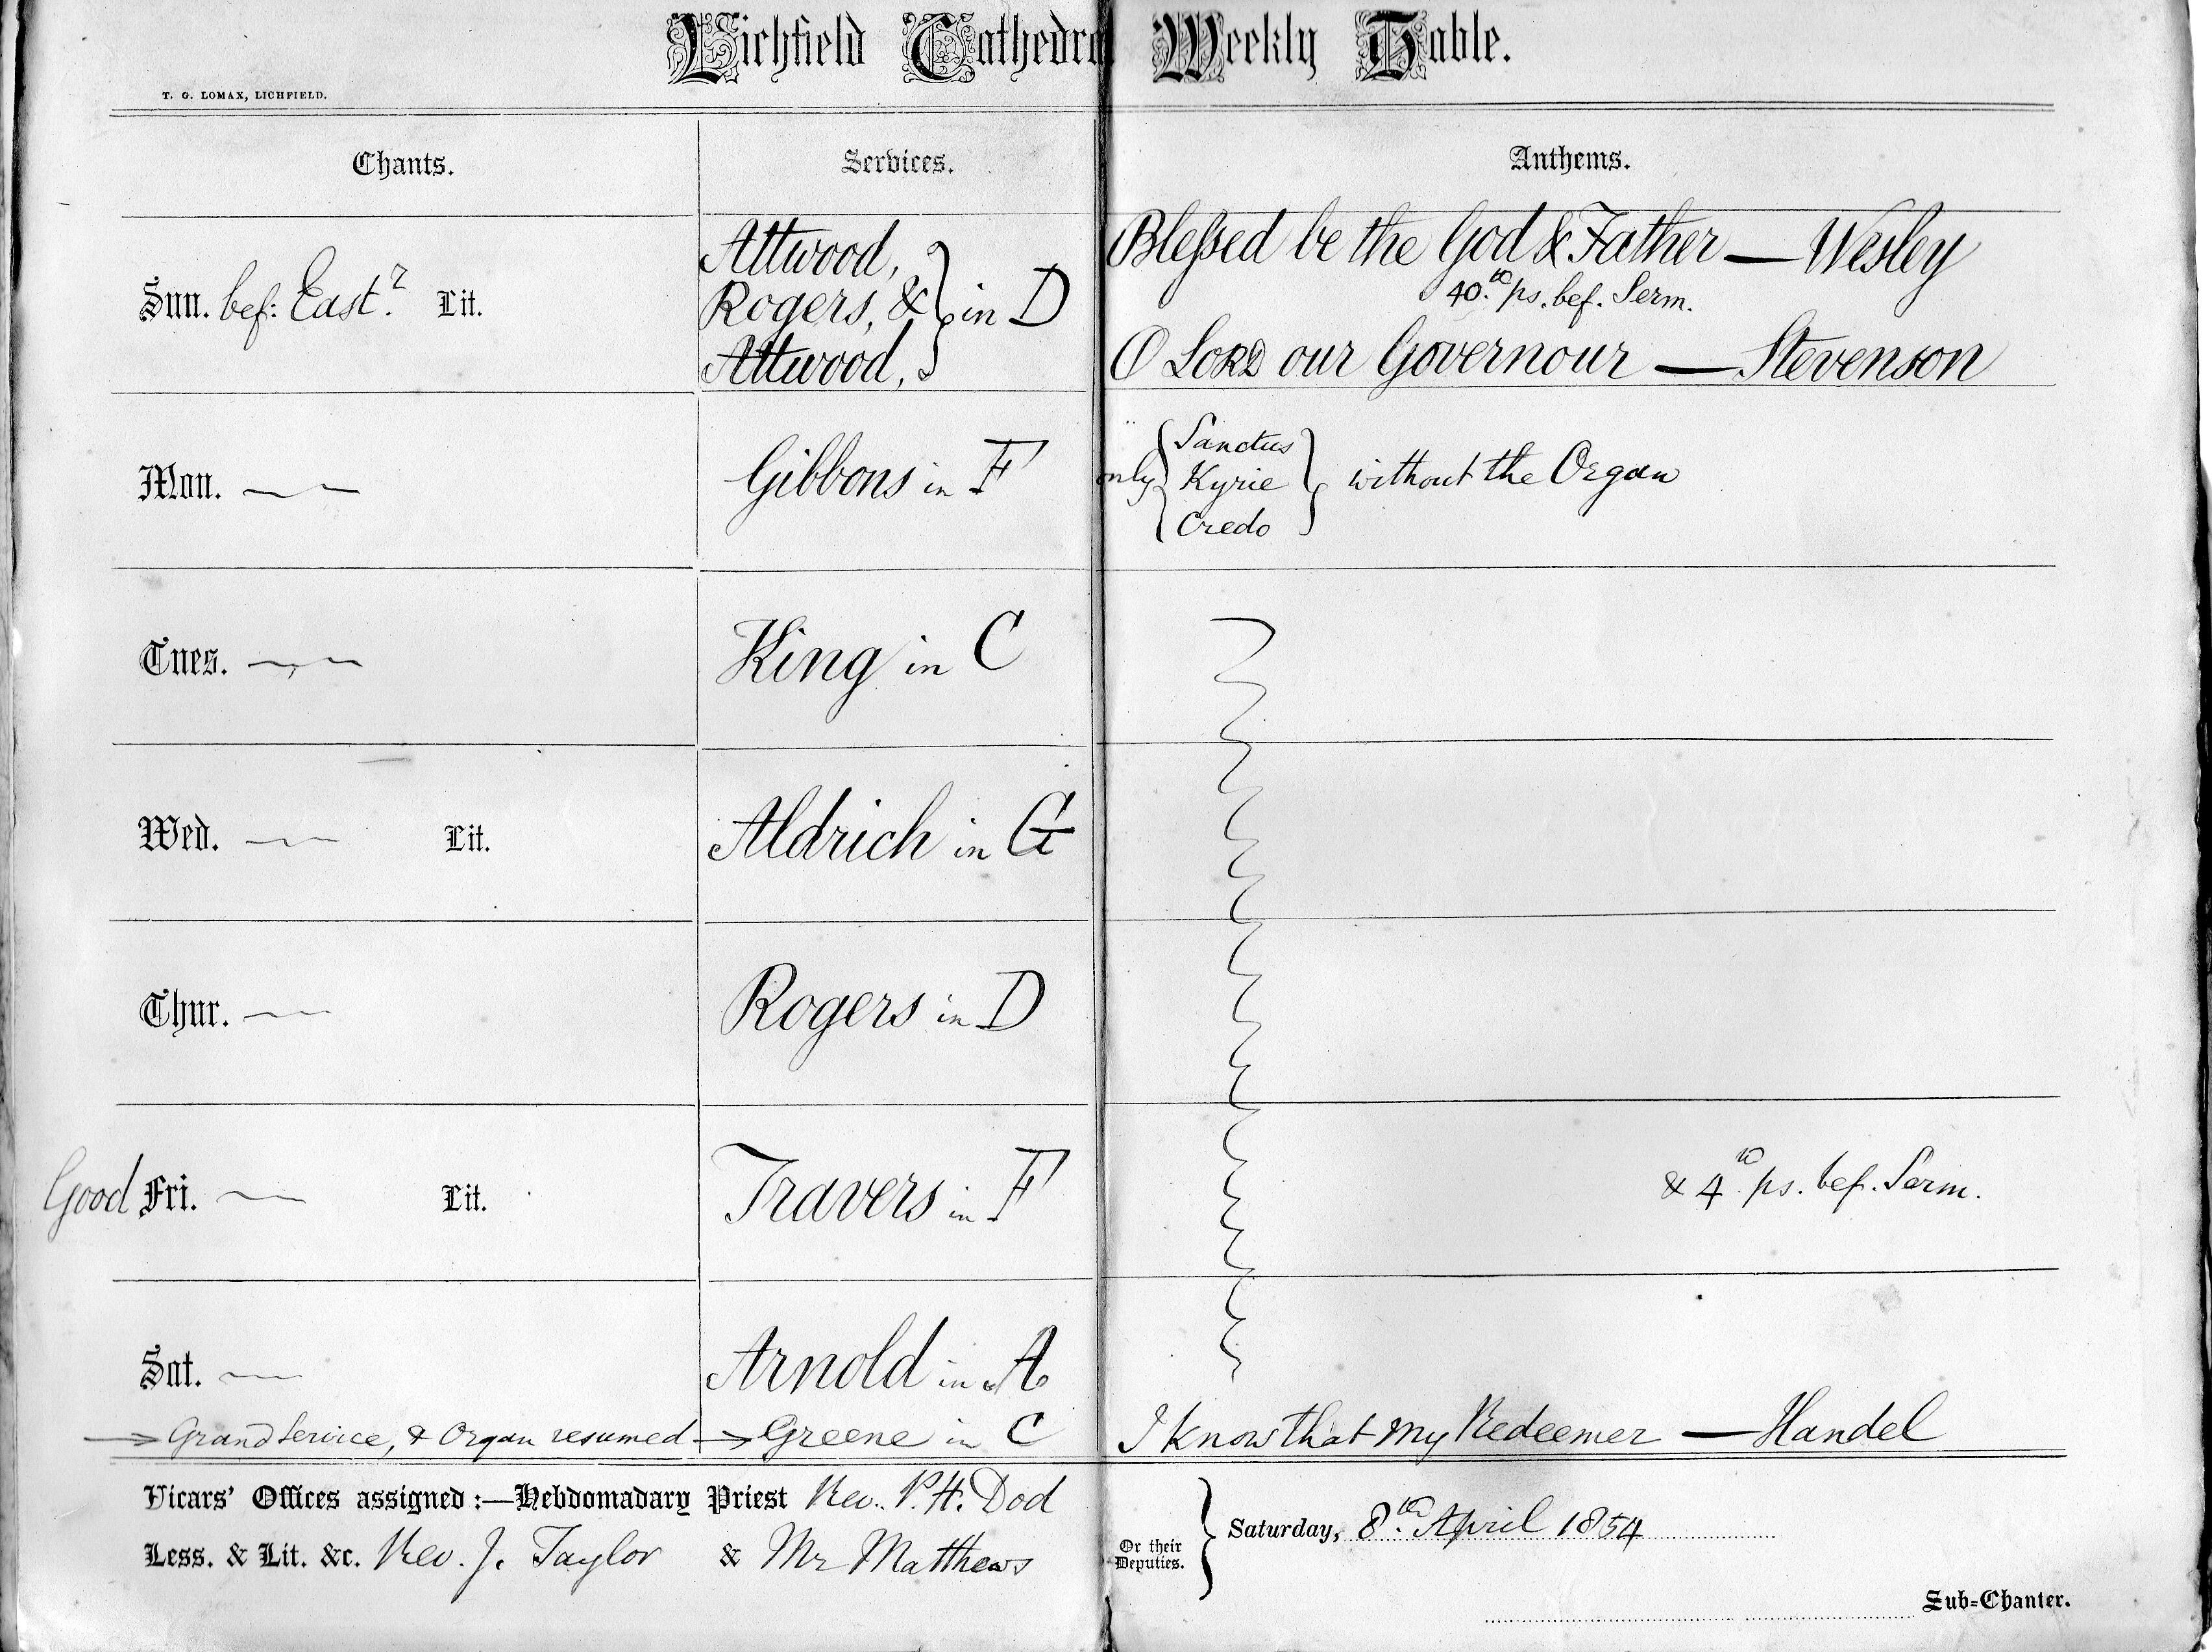 Lichfield Cathedral Weekly Table.
T. G. LOMAX, LICHFIELD.
Chants. Services. Anthems.
Sun. bef: East.r Lit.
Attwood,
Rogers, & } in D
Attwood,
Blessed be the God & Father — Wesley
40.th ps. bef. Serm.
O LORD our Governour — Stevenson
Mon. Gibbons in F
only { Sanctus
Kyrie
Credo } without the Organ
Tues. King in C
Wed. Lit. Aldrich in G
Thur. Rogers in D
Good Fri. Lit. Travers in F & 4.th ps. bef. Serm.
Sat. Arnold in A
Grand Service, & Organ resumed Greene in C I know that my Redeemer — Handel
Vicars' Offices assigned :—Hebdomadary Priest Rev. P. H. Dod
Less. & Lit. &c. Rev. J. Taylor & Mr Matthews
Or their
Deputies. } Saturday, 8.th April 1854
Sub=Chanter.